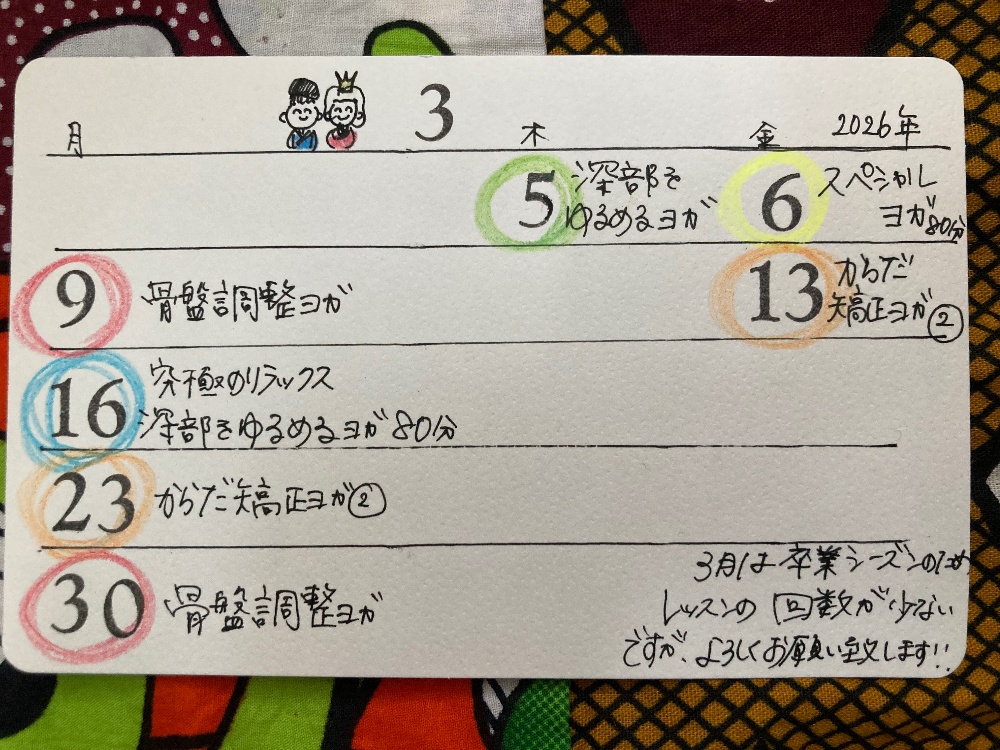 月 3 木 金 2026年
5 深部を
ゆるめるヨガ
6 スペシャル
ヨガ80分
9 骨盤調整ヨガ
13 からだ
矯正ヨガ②
16 究極のリラックス
深部をゆるめるヨガ80分
23 からだ矯正ヨガ②
30 骨盤調整ヨガ
3月は卒業シーズンのため
レッスンの回数が少ない
ですが、よろしくお願い致します!!